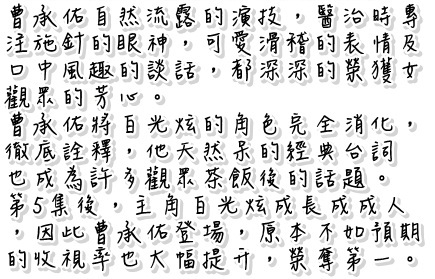 曹承佑自然流露的演技，醫治時專
注施針的眼神，可愛滑稽的表情及
口中風趣的談話，都深深的榮獲女
觀眾的芳心。
曹承佑將百光炫的角色完全消化，
徹底詮釋，他天然呆的經典台詞
也成為許多觀眾茶飯後的話題。
第5集後，主角百光炫成長成成人
，因此曹承佑登場，原本不如預期
的收視率也大幅提升，榮奪第一。